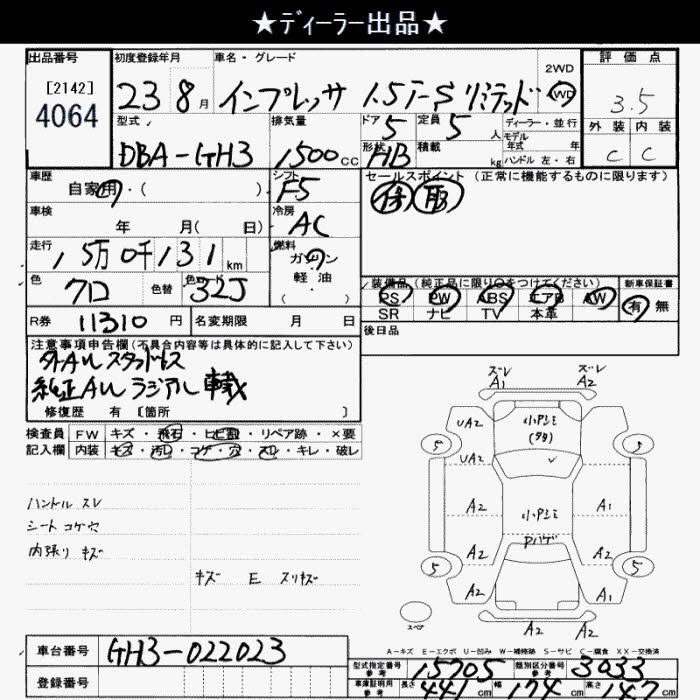 ★ディーラー出品★
出品番号
[2142]
4064
初度登録年月
23 8月
車名・グレード
インプレッサ 1.5i-Sリミテッド
2WD
4WD
評価点
3.5
外装 内装
C C
型式
DBA-GH3
排気量
1500cc
ドア
5
定員
5人
形状
HB
積載
kg
ディーラー・並行
モデル
年式 年
ハンドル 左・右
車歴
自家用・( )
シフト
F5
セールスポイント(正常に機能するものに限ります)
車検
年 月( 日)
冷房
AC
走行
15万0千131km
燃料
ガソリン
軽油
( ・ )
色
クロ
色替
色コード
32J
装備品(純正品に限り○をつけてください)
PS PW ABS エアB AW
SR ナビ TV 本革
新車保証書
有 無
R券 11310円
名変期限 月 日
後日品
注意事項申告欄(不具合内容等は具体的に記入して下さい)
外AWスタッドレス
純正AWラジアル車載
修復歴 有 〔箇所 〕
検査員 FW キズ・飛石・ヒビ割・リペア跡・×要
記入欄 内装 キズ・汚レ・コゲ・穴・スレ・キレ・破レ
ハンドル スレ
シート コゲ穴
内張り キズ
キズ E スリキズ
ズレ ズレ
A1 A2
UA2
UA2
小P⺀
(タタ)
5 5
A2 A1
A2 A2
Pハゲ
5 5
A2 A1
A2 A2
スペア
A-キズ E-エクボ U-凹み W-補修跡 S-サビ C-腐食 XX-交換済
車台番号 GH3-022023
登録番号
型式指定番号 参考 15705
類別区分番号 参考 3033
車庫証明用 参考 長さ 441cm 幅 174cm 高さ 147cm